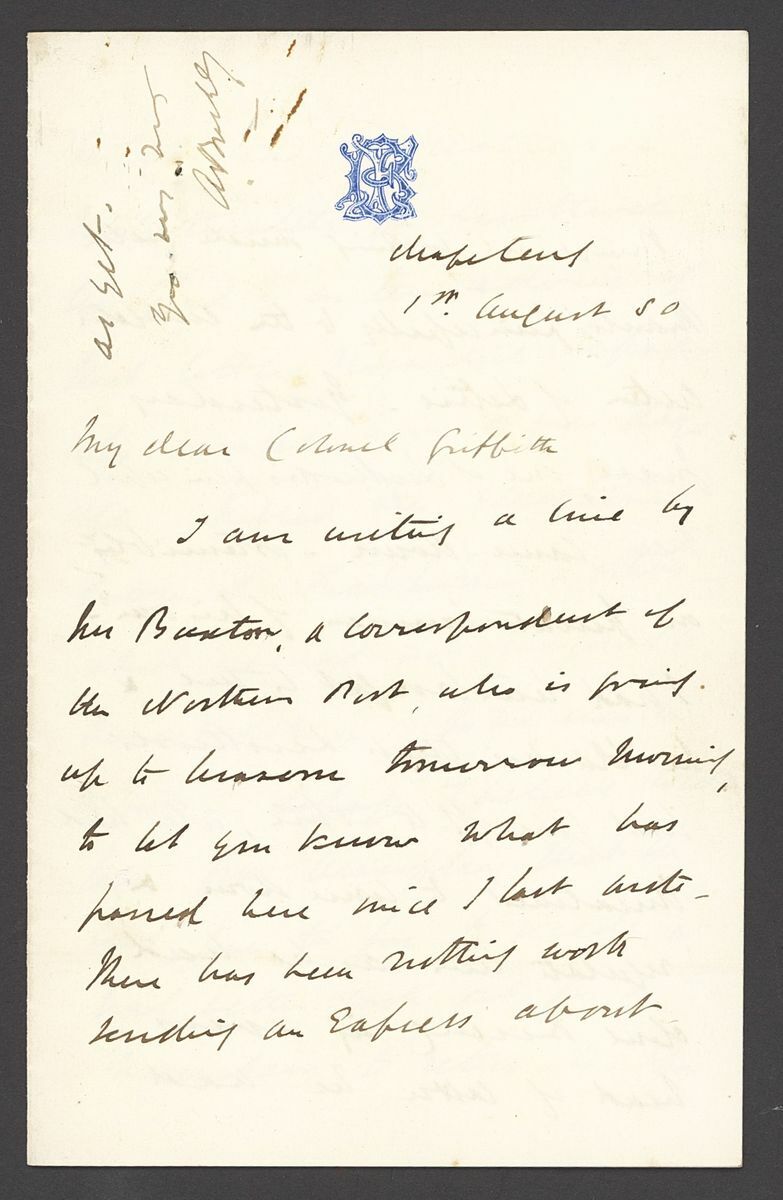 Mafeteng
1st August 80
My dear Colonel Griffith
I am writing a line by
Mr Buxton, a correspondent of
the Northern Post, who is going
up to Maseru tomorrow morning,
to let you know what has
passed here since I last wrote –
There has been nothing worth
sending an Express about –
as yet.
Yrs very truly